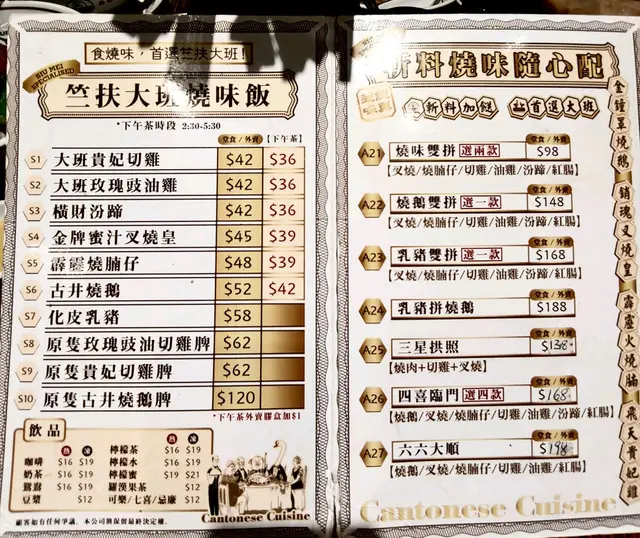 食燒味，首選竺扶大班！
SIU MEI
SPECIALISED
竺扶大班燒味飯
*下午茶時段 2:30-5:30
堂食/外賣 【下午茶】
S1 大班貴妃切雞 $42 $36
S2 大班玫瑰豉油雞 $42 $36
S3 橫財汾蹄 $42 $36
S4 金牌蜜汁叉燒皇 $45 $39
S5 霹靂燒腩仔 $48 $39
S6 古井燒鵝 $52 $42
S7 化皮乳豬 $58
S8 原隻玫瑰豉油切雞髀 $62
S9 原隻貴妃切雞髀 $62
S10 原隻古井燒鵝髀 $120
*下午茶外賣膠盒加$1
飲品
熱 凍 熱 凍
咖啡 $16 $19 檸檬茶 $16 $19
奶茶 $16 $19 檸檬水 $16 $19
鴛鴦 $16 $19 檸檬蜜 $19 $21
豆漿 $12 羅漢果茶 $12
可樂/七喜/忌廉 $12
顧客如有任何爭議，本公司將保留最終決定權。
Cantonese Cuisine
新料燒味隨心配
新料加餸 首選大班
堂食/外賣
A21 燒味雙拼 選兩款 $98
【叉燒/燒腩仔/切雞/油雞/汾蹄/紅腸】
堂食/外賣
A22 燒鵝雙拼 選一款 $148
【叉燒/燒腩仔/切雞/油雞/汾蹄/紅腸】
堂食/外賣
A23 乳豬雙拼 選一款 $168
【叉燒/燒腩仔/切雞/油雞/汾蹄/紅腸】
堂食/外賣
A24 乳豬拼燒鵝 $188
堂食/外賣
A25 三星拱照 $138
【燒肉+切雞+叉燒】
堂食/外賣
A26 四喜臨門 選四款 $168
【燒鵝/叉燒/燒腩仔/切雞/油雞/汾蹄/紅腸】
堂食/外賣
A27 六六大順 $198
【燒鵝/叉燒/燒腩仔/切雞/油雞/紅腸】
Cantonese Cuisine
金鐘罩燒鵝
銷魂叉燒皇
霹靂火燒腩
飛天貴妃雞